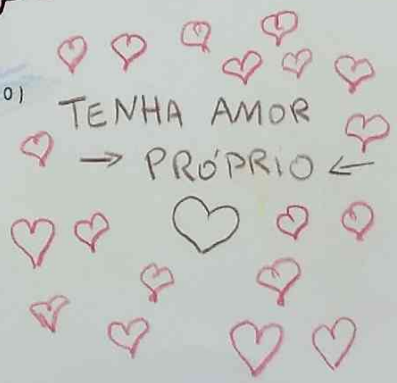 01
TENHA AMOR
→ PRÓPRIO ←